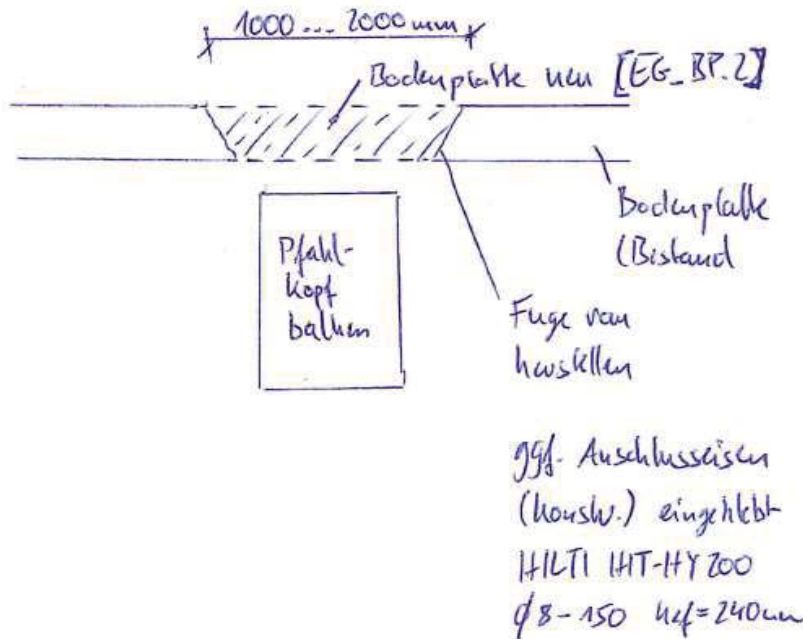 1000 ... 2000mm
Bodenplatte neu [EG_BP.2]
Bodenplatte
(Bestand
Pfahl-
kopf
balken
Fuge rau
herstellen
ggf. Anschlusseisen
(konstr.) eingeklebt
HILTI HIT-HY 200
ϕ8-150 hef=240mm